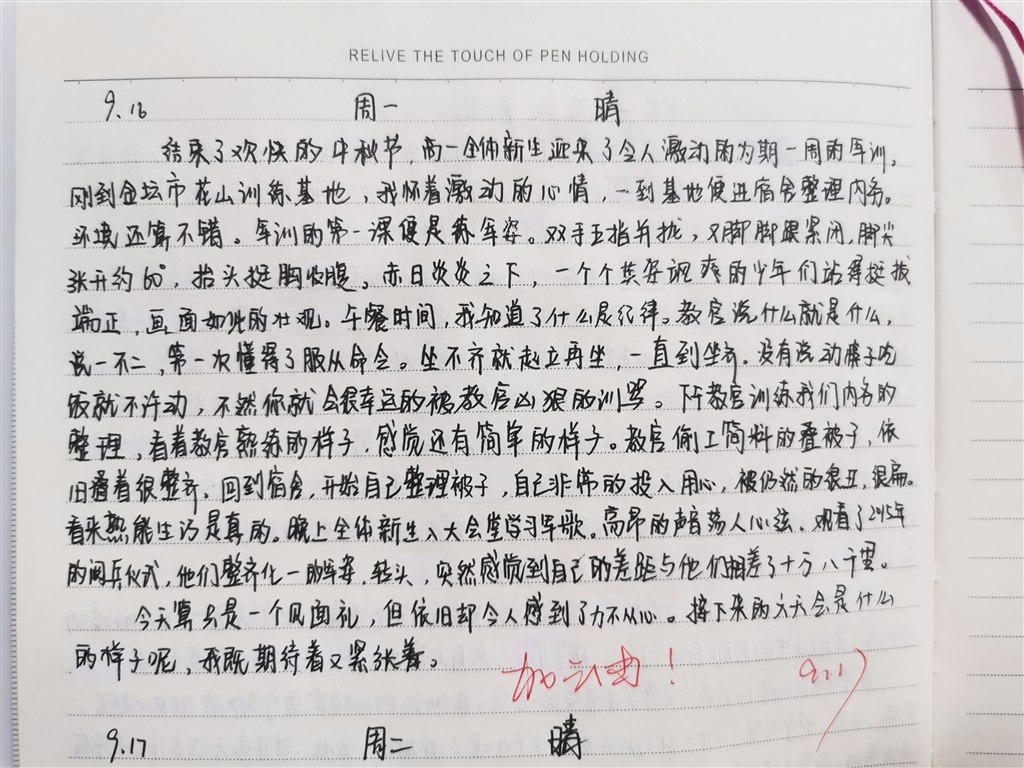 RELIVE THE TOUCH OF PEN HOLDING
9.16 周一 晴
结束了欢快的中秋节,高一全体新生迎来了令人激动的为期一周的军训。
刚到金坛市花山训练基地,我怀着激动的心情,一到基地便进宿舍整理内务。
环境还算不错。军训的第一课便是练军姿。双手五指并拢,双脚脚跟紧闭,脚尖
张开约60°,抬头挺胸收腹。赤日炎炎之下,一个个英姿飒爽的少年们站得挺拔
端正,画面如此的壮观。午餐时间,我知道了什么是纪律。教官说什么就是什么,
说一不二,第一次懂得了服从命令。坐不齐就起立再坐,一直到坐齐。没有说动筷子吃
饭就不许动,不然你就会很幸运的被教官凶狠的训骂。下午教官训练我们内务的
整理,看着教官熟练的样子,感觉还有简单的样子。教官偷工简料的叠被子,依
旧叠着很整齐。回到宿舍,开始自己整理被子,自己非常的投入用心,被仍然的很丑,很扁。
看来熟能生巧是真的。晚上全体新生入大会堂学习军歌。高昂的声音荡人心弦,观看了2015年
的阅兵仪式,他们整齐化一的军姿,转头,突然感觉到自己的差距与他们相差了十万八千里。
今天算只是一个见面礼,但依旧却令人感到了力不从心。接下来的六天会是什么
的样子呢,我既期待着又紧张着。
加油! 9.17
9.17 周二 晴